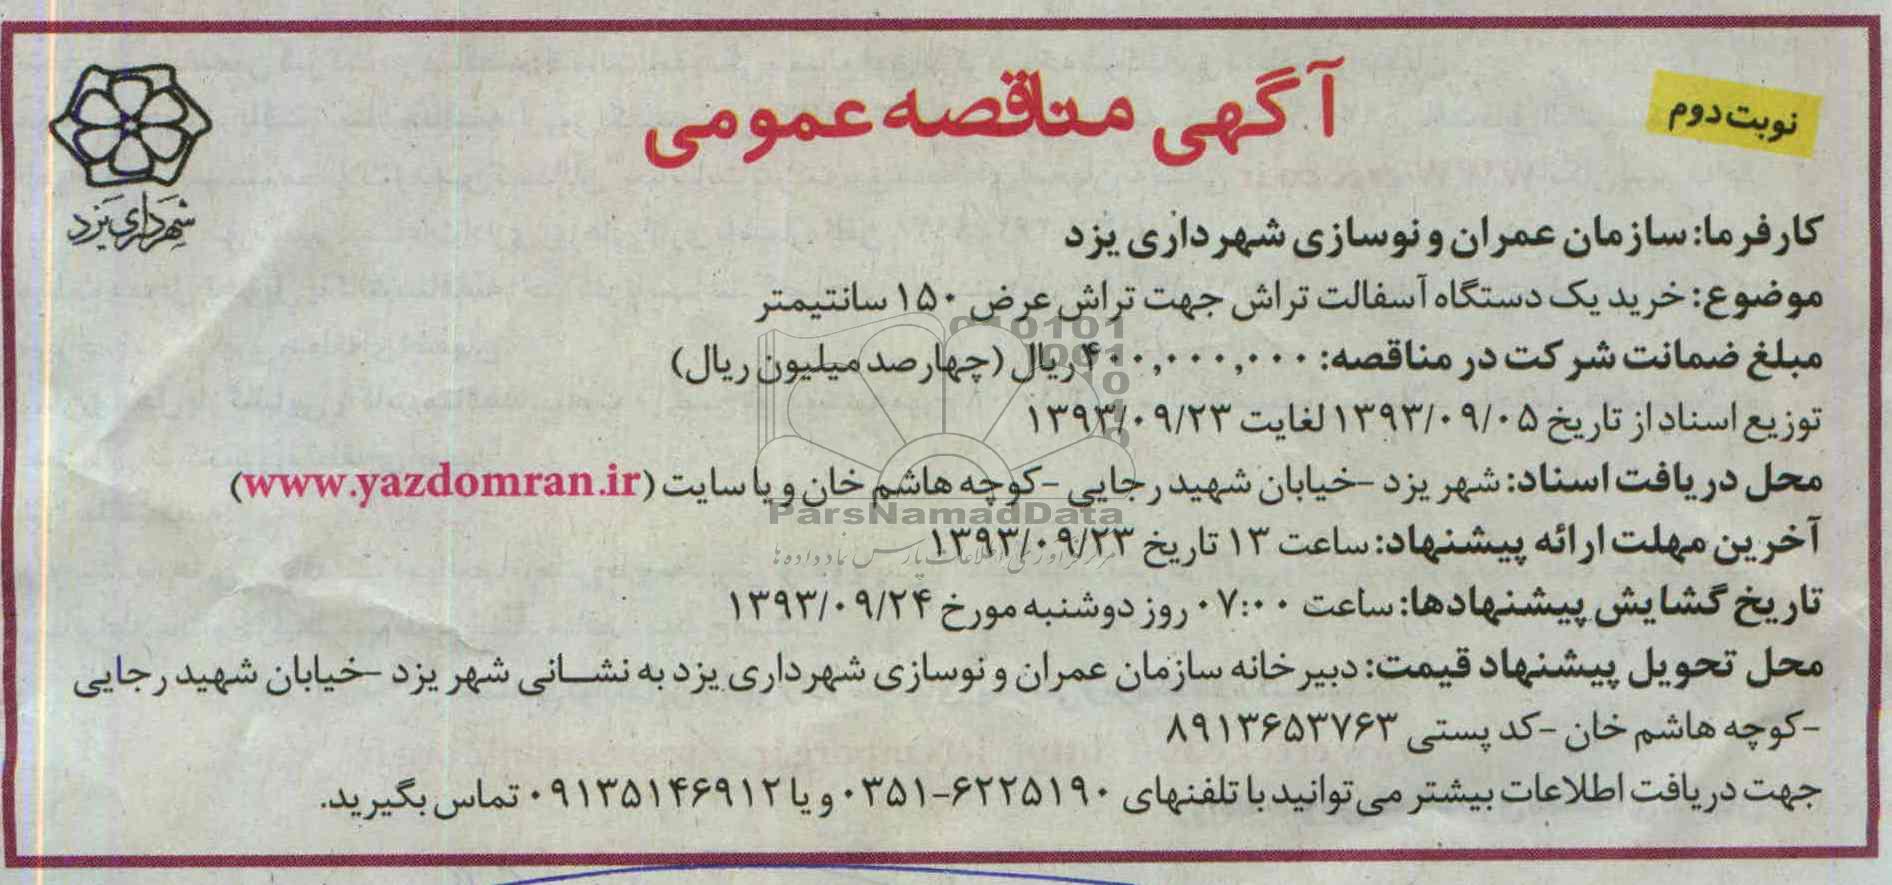 نوبت دوم
آگهی مناقصه عمومی
شهرداری یزد
کارفرما: سازمان عمران و نوسازی شهرداری یزد
موضوع: خرید یک دستگاه آسفالت تراش جهت تراش عرض ۱۵۰ سانتیمتر
مبلغ ضمانت شرکت در مناقصه: ۴۰۰,۰۰۰,۰۰۰ ریال (چهارصد میلیون ریال)
توزیع اسناد از تاریخ ۱۳۹۳/۰۹/۰۵ لغایت ۱۳۹۳/۰۹/۲۳
محل دریافت اسناد: شهر یزد -خیابان شهید رجایی -کوچه هاشم خان و یا سایت (www.yazdomran.ir)
ParsNamadData
آخرین مهلت ارائه پیشنهاد: ساعت ۱۳ تاریخ ۱۳۹۳/۰۹/۲۳
تاریخ گشایش پیشنهادها: ساعت ۰۷:۰۰ روز دوشنبه مورخ ۱۳۹۳/۰۹/۲۴
محل تحویل پیشنهاد قیمت: دبیرخانه سازمان عمران و نوسازی شهرداری یزد به نشانی شهر یزد -خیابان شهید رجایی
-کوچه هاشم خان -کد پستی ۸۹۱۳۶۵۳۷۶۳
جهت دریافت اطلاعات بیشتر می‌توانید با تلفنهای ۶۲۲۵۱۹۰-۰۳۵۱ و یا ۰۹۱۳۵۱۴۶۹۱۲ تماس بگیرید.